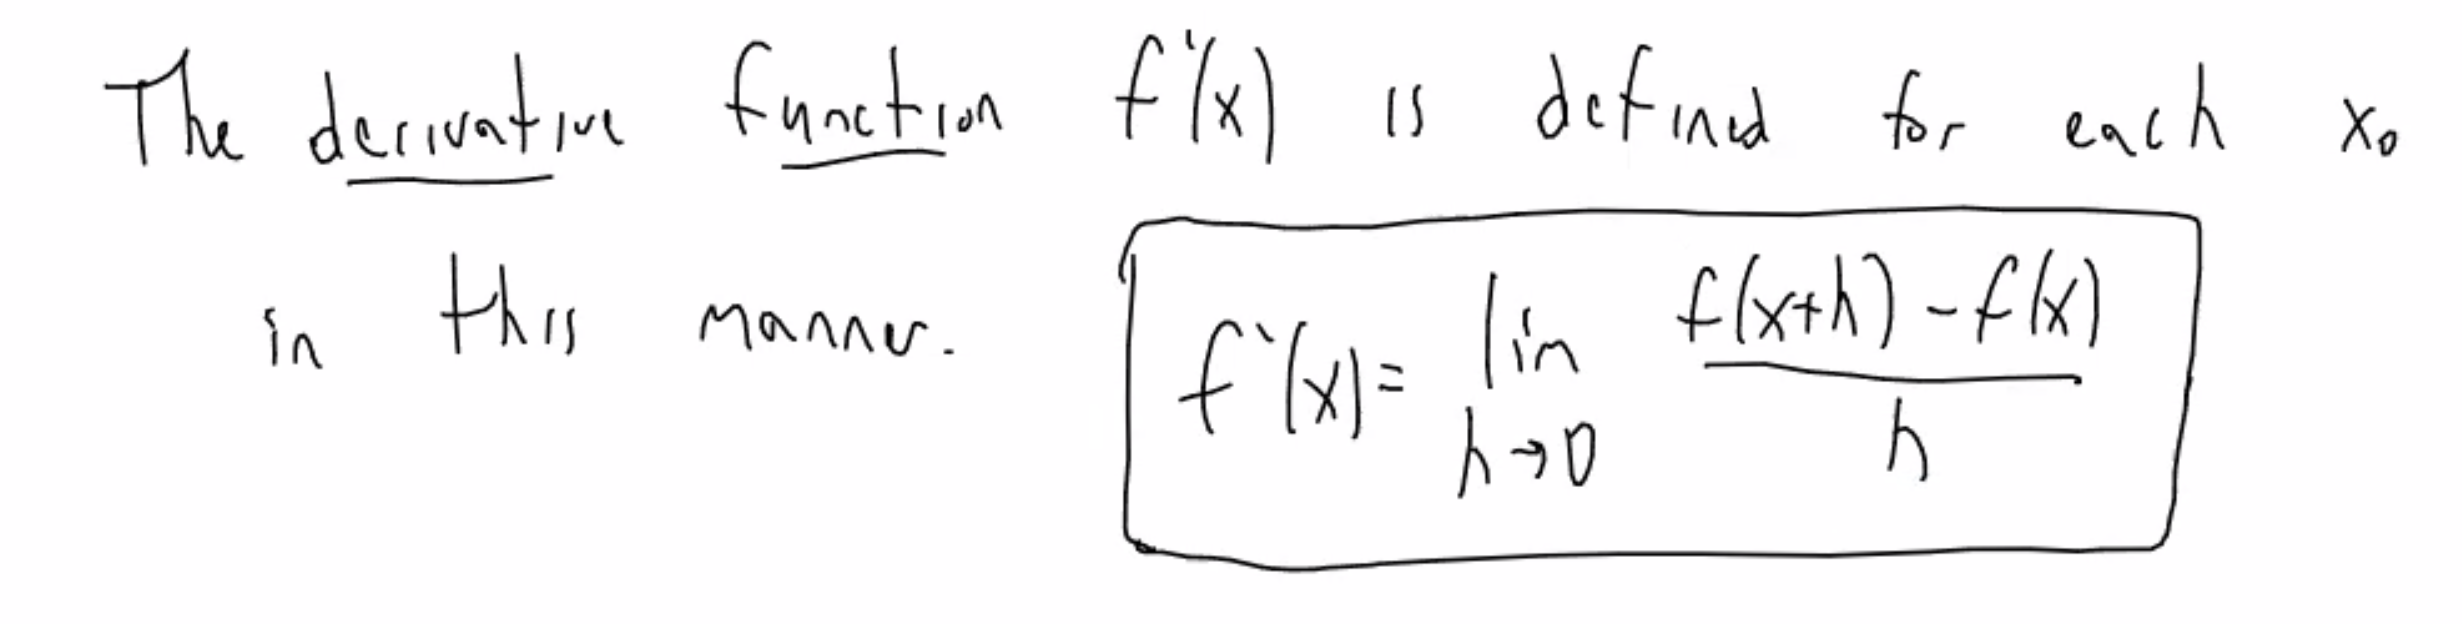 The derivative function f'(x) is defined for each x₀
in this manner.
f'(x) = lim h→0 f(x+h) - f(x) / h